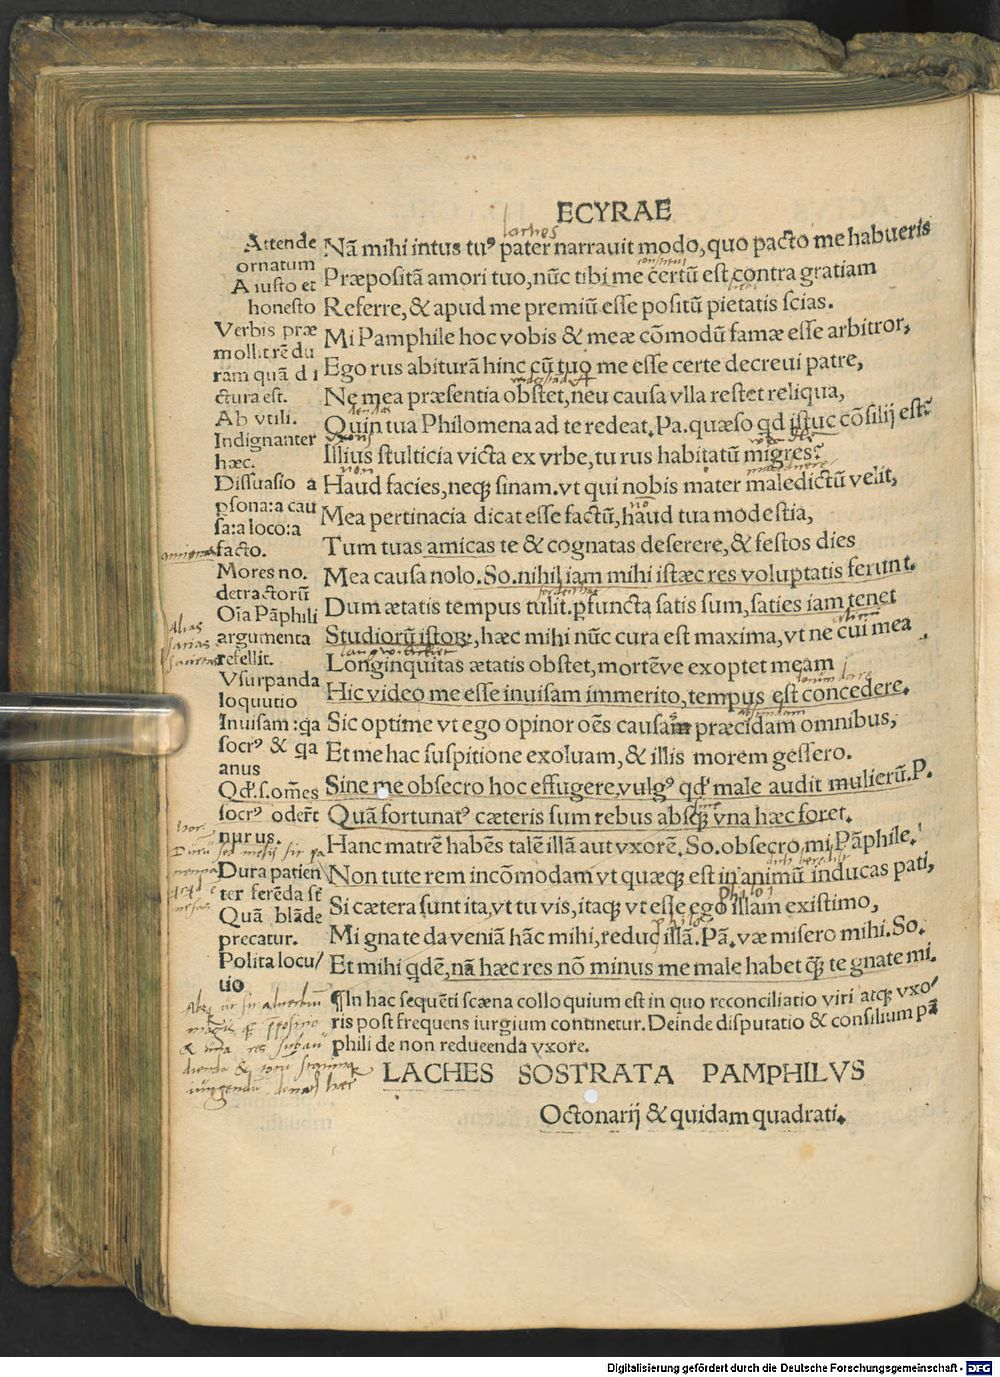 ECYRAE
laches
Attende
ornatum
A iusto et
honesto
Verbis præ
mollit rē du
ram quā di
ctura est.
Ab vtili.
Indignanter
hæc.
Dissuasio a
psona:a cau
sa:a loco:a
facto.
Mores no.
detractorū
Oīa Pāphili
argumenta
refellit.
Vsurpanda
loquutio
Inuisam:qa
socrꝰ & qa
anus
Qđ.s.om̄es
socrꝰ oder̄t
nurus.
Dura patien
ter ferēda sī
Quā blāde
precatur.
Polita locu/
tio
Nā mihi intus tuꝰ pater narrauit modo, quo pacto me habueris
Præpositā amori tuo, nūc tibi me certū est contra gratiam
Referre, & apud me premiū esse positū pietatis scias.
Mi Pamphile hoc vobis & meæ cōmodū famæ esse arbitror,
Ego rus abiturā hinc cū tuo me esse certe decreui patre,
Ne mea præsentia obstet, neu causa vlla restet reliqua,
Quin tua Philomena ad te redeat. Pa. quæso qd istuc cōsilij est?
Illius stulticia victa ex vrbe, tu rus habitatū migres?
Haud facies, neqꝫ sinam. vt qui nobis mater maledictū velit,
Mea pertinacia dicat esse factū, haud tua modestia,
Tum tuas amicas te & cognatas deserere, & festos dies
Mea causa nolo. So. nihil iam mihi istæc res voluptatis ferunt.
Dum ætatis tempus tulit. pfuncta satis sum, saties iam tenet
Studiorū istoꝝ, hæc mihi nūc cura est maxima, vt ne cui mea
Longinquitas ætatis obstet, mortēve exoptet meam
Hic video me esse inuisam immerito, tempus est concedere.
Sic optime vt ego opinor oēs causam præcidam omnibus,
Et me hac suspitione exoluam, & illis morem gessero.
Sine me obsecro hoc effugere, vulgꝰ qđ male audit mulierū. P.
Quā fortunatꝰ cæteris sum rebus absqꝫ vna hæc foret.
Hanc matrē habēs talē illā aut vxorē. So. obsecro mi Pāphile.
Non tute rem incōmodam vt quæqꝫ est in animū inducas pati,
Si cætera sunt ita, vt tu vis, itaqꝫ vt esse ego illam existimo,
Mi gnate da veniā hāc mihi, reduc illā. Pā. væ misero mihi. So.
Et mihi qdē, nā hæc res nō minus me male habet qꝫ̄ te gnate mi.
¶In hac sequēti scæna colloquium est in quo reconciliatio viri atqꝫ vxo/
ris post frequens iurgium continetur. Deinde disputatio & consilium pā
phili de non reduceenda vxore.
LACHES SOSTRATA PAMPHILVS
Octonarij & quidam quadrati.
Digitalisierung gefördert durch die Deutsche Forschungsgemeinschaft - DFG